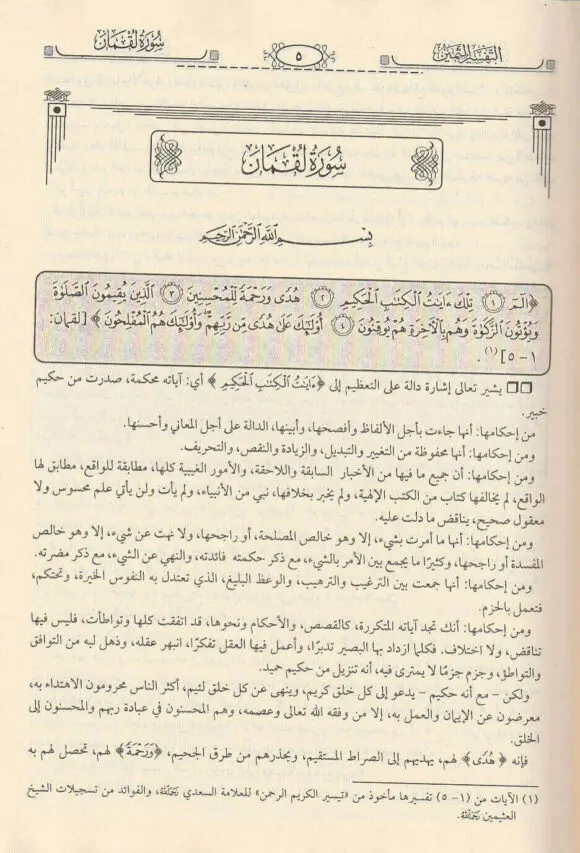 التفسير الثمين
٥
سورة لقمان
سورة لقمان
بسم الله الرحمن الرحيم
﴿الٓمٓ ١ تِلْكَ ءَايَٰتُ ٱلْكِتَٰبِ ٱلْحَكِيمِ ٢ هُدًى وَرَحْمَةً لِّلْمُحْسِنِينَ ٣ ٱلَّذِينَ يُقِيمُونَ ٱلصَّلَوٰةَ
وَيُؤْتُونَ ٱلزَّكَوٰةَ وَهُم بِٱلْأَخِرَةِ هُمْ يُوقِنُونَ ٤ أُوْلَٰٓئِكَ عَلَىٰ هُدًى مِّن رَّبِّهِمْ وَأُوْلَٰٓئِكَ هُمُ ٱلْمُفْلِحُونَ﴾ [لقمان:
١ - ٥](١).
يشير تعالى إشارة دالة على التعظيم إلى ﴿ءَايَٰتُ ٱلْكِتَٰبِ ٱلْحَكِيمِ﴾ أي: آياته محكمة، صدرت من حكيم
خبير.
من إحكامها: أنها جاءت بأجل الألفاظ وأفصحها، وأبينها، الدالة على أجل المعاني وأحسنها.
ومن إحكامها: أنها محفوظة من التغيير والتبديل، والزيادة والنقص، والتحريف.
ومن إحكامها: أن جميع ما فيها من الأخبار السابقة واللاحقة، والأمور الغيبية كلها، مطابقة للواقع، مطابق لها
الواقع، لم يخالفها كتاب من الكتب الإلهية، ولم يخبر بخلافها، نبي من الأنبياء، ولم يأت ولن يأتي علم محسوس ولا
معقول صحيح، يناقض ما دلت عليه.
ومن إحكامها: أنها ما أمرت بشيء، إلا وهو خالص المصلحة، أو راجحها، ولا نهت عن شيء، إلا وهو خالص
المفسدة أو راجحها، وكثيرًا ما يجمع بين الأمر بالشيء، مع ذكر حكمته فائدته، والنهي عن الشيء، مع ذكر مضرته.
ومن إحكامها: أنها جمعت بين الترغيب والترهيب، والوعظ البليغ، الذي تعتدل به النفوس الخيرة، وتحتكم،
فتعمل بالحزم.
ومن إحكامها: أنك تجد آياته المتكررة، كالقصص، والأحكام ونحوها، قد اتفقت كلها وتواطأت، فليس فيها
تناقض، ولا اختلاف. فكلما ازداد بها البصير تدبرًا، وأعمل فيها العقل تفكرًا، انبهر عقله، وذهل لبه من التوافق
والتواطؤ، وجزم جزمًا لا يمترى فيه، أنه تنزيل من حكيم حميد.
ولكن - مع أنه حكيم - يدعو إلى كل خلق كريم، وينهى عن كل خلق لئيم، أكثر الناس محرومون الاهتداء به،
معرضون عن الإيمان والعمل به، إلا من وفقه الله تعالى وعصمه، وهم المحسنون في عبادة ربهم والمحسنون إلى
الخلق.
فإنه ﴿هُدًى﴾ لهم، يهديهم إلى الصراط المستقيم، ويحذرهم من طرق الجحيم، ﴿وَرَحْمَةً﴾ لهم، تحصل لهم به
(١) الآيات من (١-٥) تفسيرها مأخوذ من «تيسير الكريم الرحمن» للعلامة السعدي رحمه الله، والفوائد من تسجيلات الشيخ
العثيمين رحمه الله.